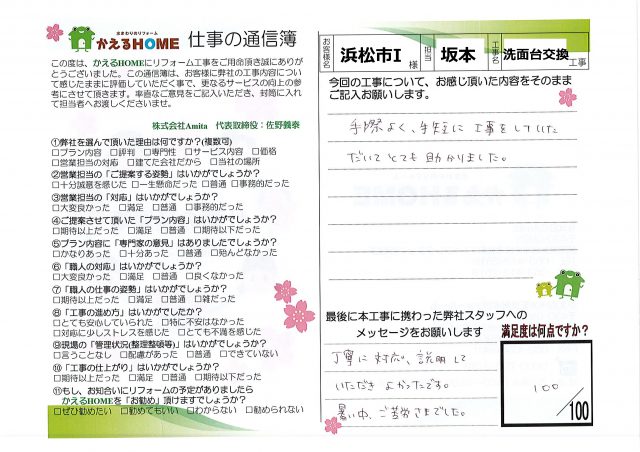 水まわりのリフォーム
かえるHOME 仕事の通信簿
この度は、かえるHOMEにリフォーム工事をご用命頂き誠にありが
とうございました。この通信簿は、お客様に弊社の工事内容につい
て感じたままに評価していただく事で、更なるサービスの向上の参
考にさせて頂きます。率直なご意見をご記入いただき、封筒に入れ
て担当者へお渡しくださいませ。
株式会社Amita 代表取締役：佐野義泰
①弊社を選んで頂いた理由は何ですか?(複数可)
□プラン内容 □評判 □専門性 □サービス内容 □価格
□営業担当の対応 □建てた会社だから □当社の場所
②営業担当の「ご提案する姿勢」はいかがでしょうか?
□十分誠意を感じた □一生懸命だった □普通 □事務的だった
③営業担当の「対応」はいかがでしょうか?
□大変良かった □満足 □普通 □事務的だった
④ご提案させて頂いた「プラン内容」はいかがでしょうか?
□期待以上だった □満足 □普通 □期待以下だった
⑤プラン内容に「専門家の意見」はありましたでしょうか?
□かなりあった □十分あった □普通 □殆んどなかった
⑥「職人の対応」はいかがでしょうか?
□大変良かった □満足 □普通 □良くなかった
⑦「職人の仕事の姿勢」はいかがでしょうか?
□期待以上だった □満足 □普通 □雑だった
⑧「工事の進め方」はいかがでしたか?
□とても安心していられた □特に不安はなかった
□対応に少しストレスを感じた □とても不満を感じた
⑨現場の「管理状況(整理整頓等)」はいかがでしょうか?
□言うことなし □配慮があった □普通 □できていない
⑩「工事の仕上がり」はいかがでしょうか?
□期待以上だった □満足 □普通 □期待以下だった
⑪もし、お知合いにリフォームの予定がありましたら
かえるHOMEを「お勧め」頂けますでしょうか?
□ぜひ勧めたい □勧めてもいい □わからない □勧められない
お客様名 浜松市I 様 担当 坂本 工事名 洗面台交換 工事
今回の工事について、お感じ頂いた内容をそのまま
ご記入お願いします。
手際よく、手短に工事をしていた
だいてとても助かりました。
最後に本工事に携わった弊社スタッフへの
メッセージをお願いします
丁寧に対応、説明して
いただきよかったです。
暑い中、ご苦労さまでした。
満足度は何点ですか?
100
/100